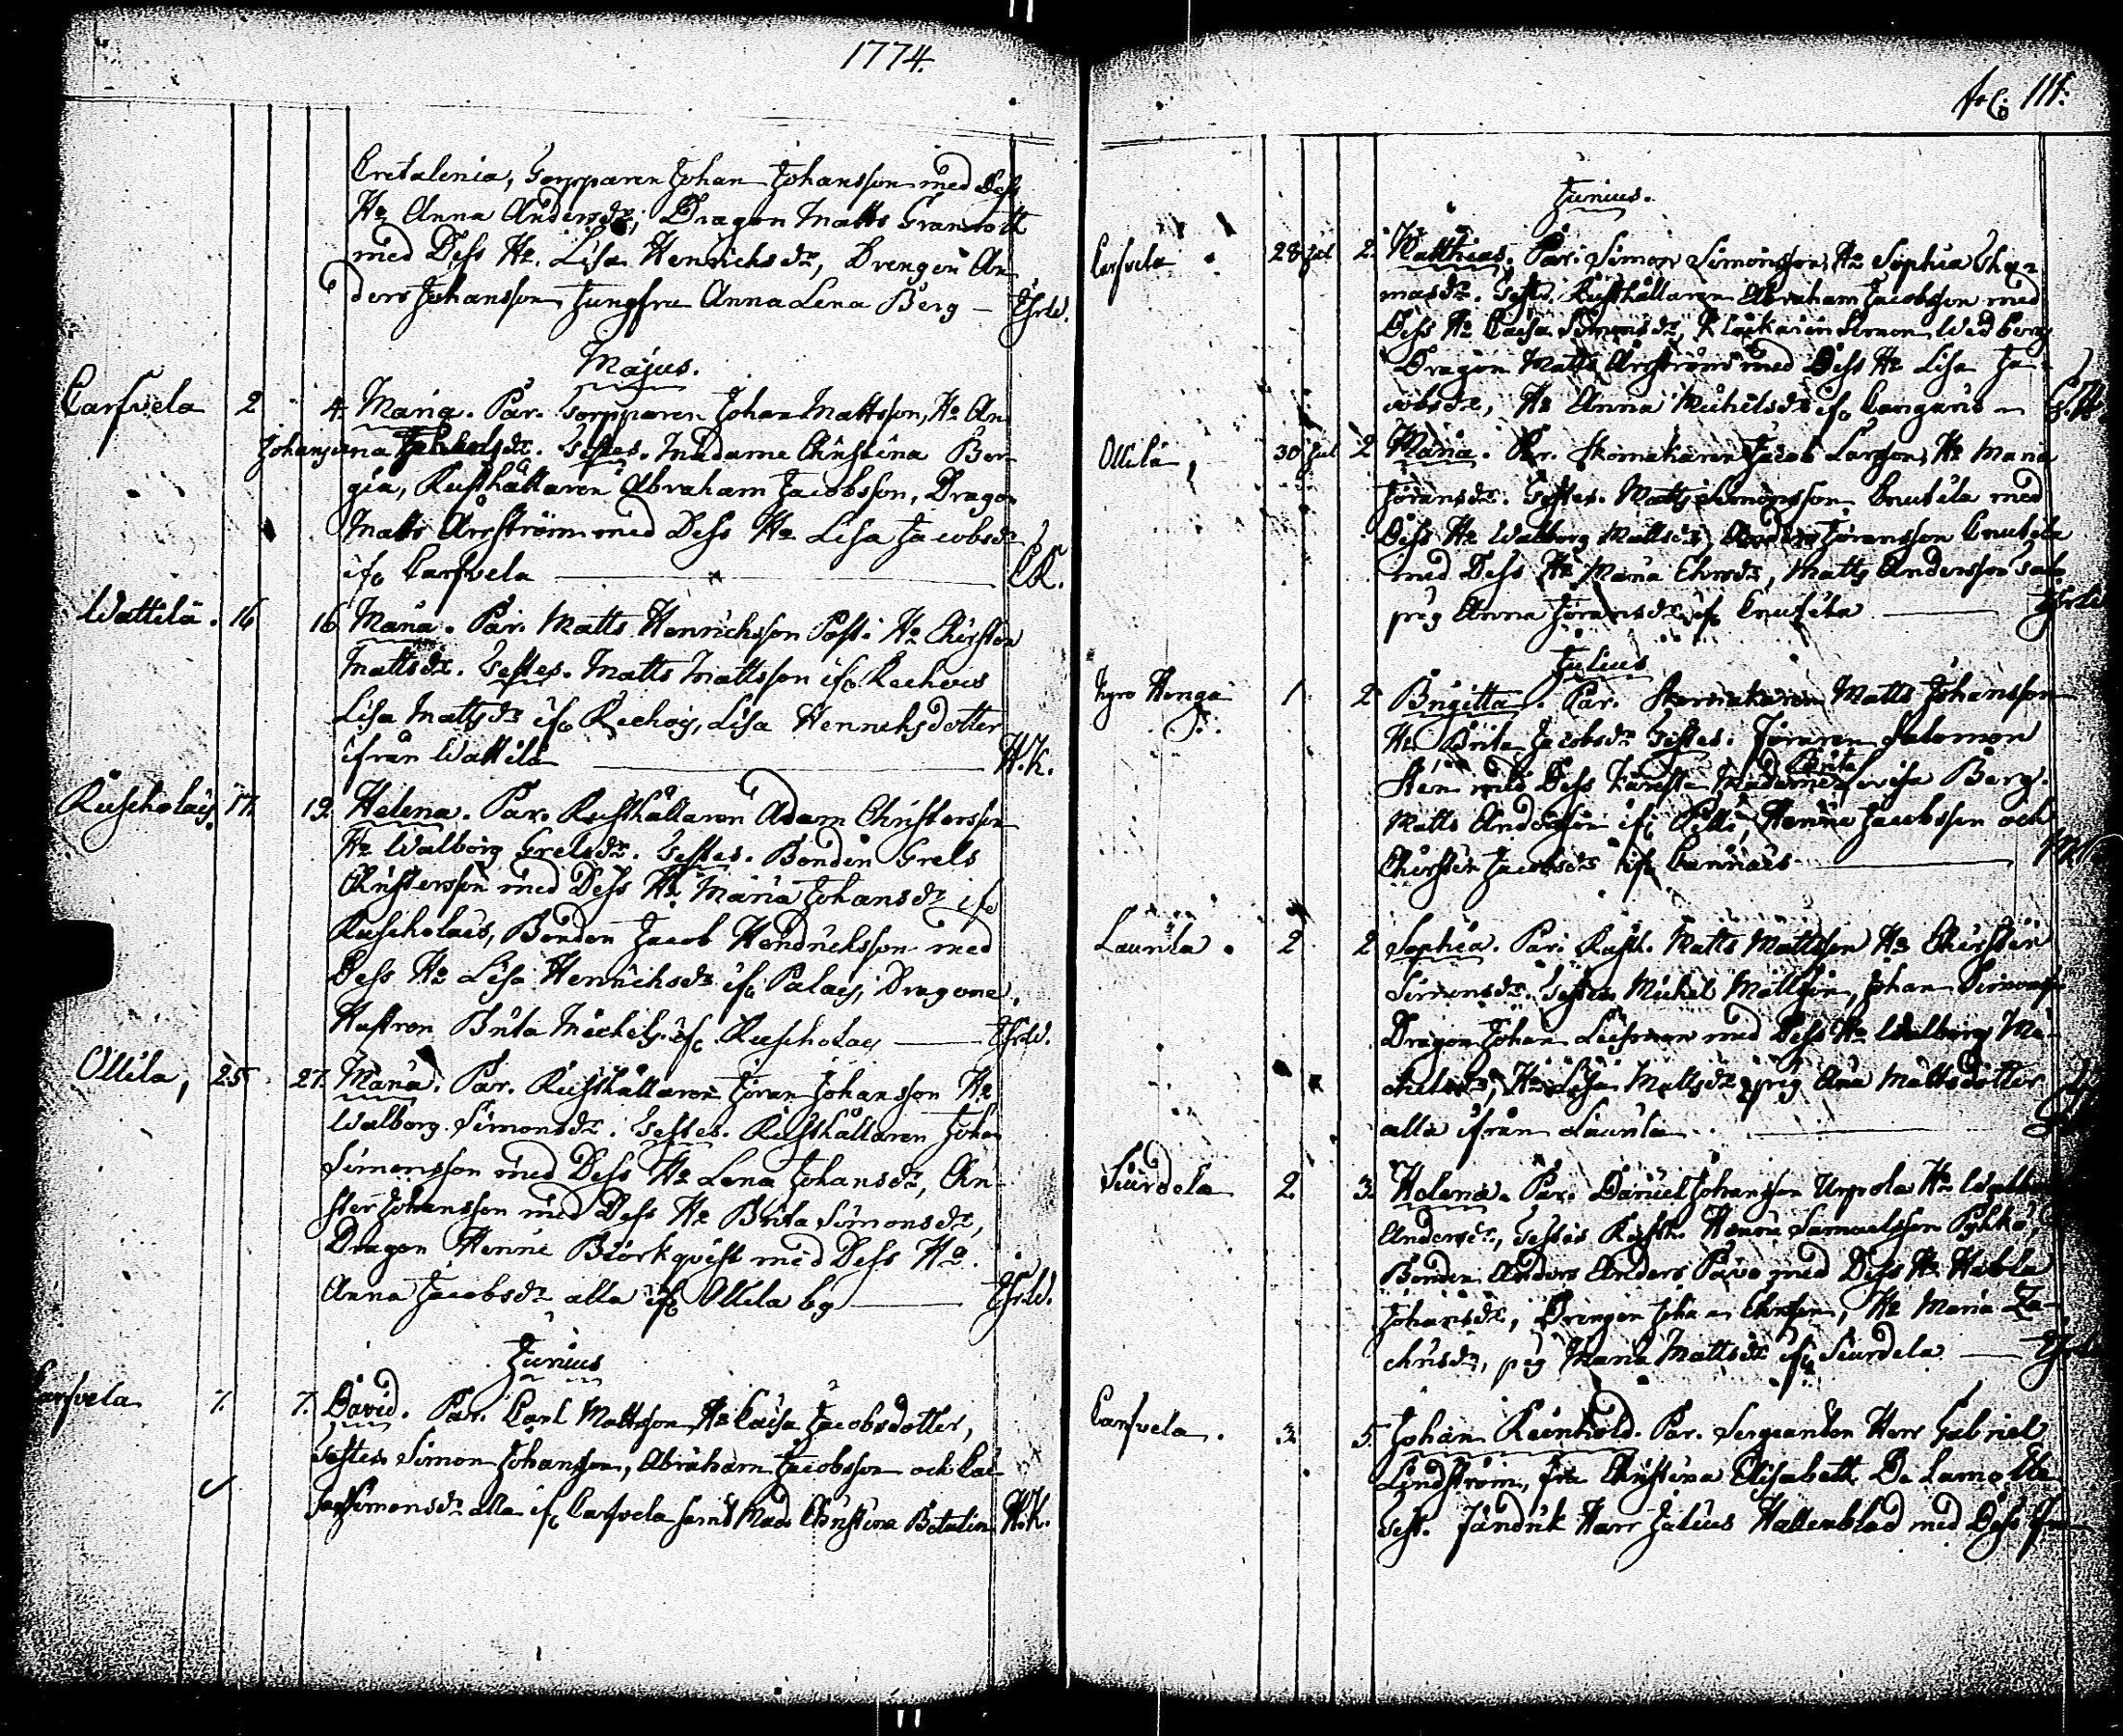 1774.
Cretalenia, Torpparen Johan Johansson med Dess
Ho Anna Andersdr, Dragon Matts Granrott
med Dess Ho. Lisa Henrichsdr, Drengen An
ders Johansson Jungfru Anna Lena Berg —
Majus.
Carfvela 2 4. Maria. Par. Torpparen Johan Mattsson, Ho An
Johans na dr. Testes. Madame Christina Ber
gia, Rusthållaren Abraham Jacobsson, Dragon
Matts Årrström med Dess Ho Lisa Jacobsdr
ifr Carfvela — CK.
Wattila. 16 16 Maria. Par. Matts Henrichsson Post. Ho Chirstin
Mattsdr. Testes. Matts Mattsson ifr Keehois
Lisa Mattsdr ifr Keehois, Lisa Henrichsdotter
ifrån Wattila — H.K.
Ruskolais. 17. 19. Helena. Par. Rusthållaren Adam Christersson
Ho Walborg Grelsdr. Testes. Bonden Grels
Christersson med Dess Ho Maria Johansdr ifr
Ruskolais, Bonden Jacob Hendricksson med
Dess Ho Lisa Henrichsdr ifr Palais, Dragone.
Hustron Brita Michels. ifr Ruskolais —
Ollila, 25 27. Maria. Par. Rusthållaren Jöran Johansson Ho
Walborg Simonsdr. Testes. Rusthållaren Johan
Simonsson med Dess Ho Lena Johansdr, Chri-
ster Johansson med Dess Ho Brita Simonsdr,
Dragon Henric Biörkqvist med Dess Ho.
Anna Jacobsdr alla ifr Ollila by —
Junius
Carfvela 7. 7. David. Par. Carl Mattsson, Ho Caisa Jacobsdotter,
Testes Simon Johansson, Abraham Jacobsson och Cai-
sa Simonsdr alla ifr Carfvela samt Mad. Christina Betulin H.K.
fol: 111.
Junius.
Carfvela 28 Jul 2. Matthias. Par. Simon Simonsson, Ho Sophia Tho-
masdr. Testes. Rusthållaren Abraham Jacobsson med
Dess Ho Caisa Simonsdr, Klockaren Simon Widberg
Dragon Matts Årrström med Dess Ho Lisa Ja-
cobsdr, Ho Anna Michelsdr ifr Cangaris —
Ollila, 30 Jul 2 Maria. Par. Skomakaren Jacob Larsson, Ho Maria
Jöransdr. Testes. Matts Simonsson Cnutila med
Dess Ho Walborg Mattsdr, Anders Jöransson Cnutila
med Dess Ho Maria Ericsdr, Matts Andersson
pig Anna Jöransdr ifr Cnutila —
Julius
Honga 1. 2 Brigitta. Par. Skomakaren Matts Johansson
Ho Brita Jacobsdr Testes. Salomon
Sten med Dess Madame Brita Lovisa Berg.
Matts Andersson ifr Henric Jacobsson och
Chirstin Jacobsdr ifr —
Laurila. 2 2 Sophia. Par. Rusth. Matts Mattsson Ho Chirstin
Simonsdr. Testes Michel Mattsson, Johan Simonss.
Dragon Johan med Dess Ho Walborg Mi-
chelsdr, Ho Lisa Mattsdr, pig Ana Mattsdotter
alla ifrån Laurila. —
Siurdela 2. 3. Helena. Par. Daniel Johansson Urpola Ho
Andersdr, Testes Rusth. Henric Samuelsson
Bonden Anders Anders Pavo med Dess Ho Hebla
Johansdr, Drengen Johan Ericsson, Ho Maria Za-
chrisdr, pig Maria Mattsdr ifr Siurdela —
Carfvela. 3. 5. Johan Reinhold. Par. Sergeanten Herr Gabriel
Lindström, Fru Christina Elisabett De Lamotte
Test. Fändrik Herr Julius Hallenblad med Dess